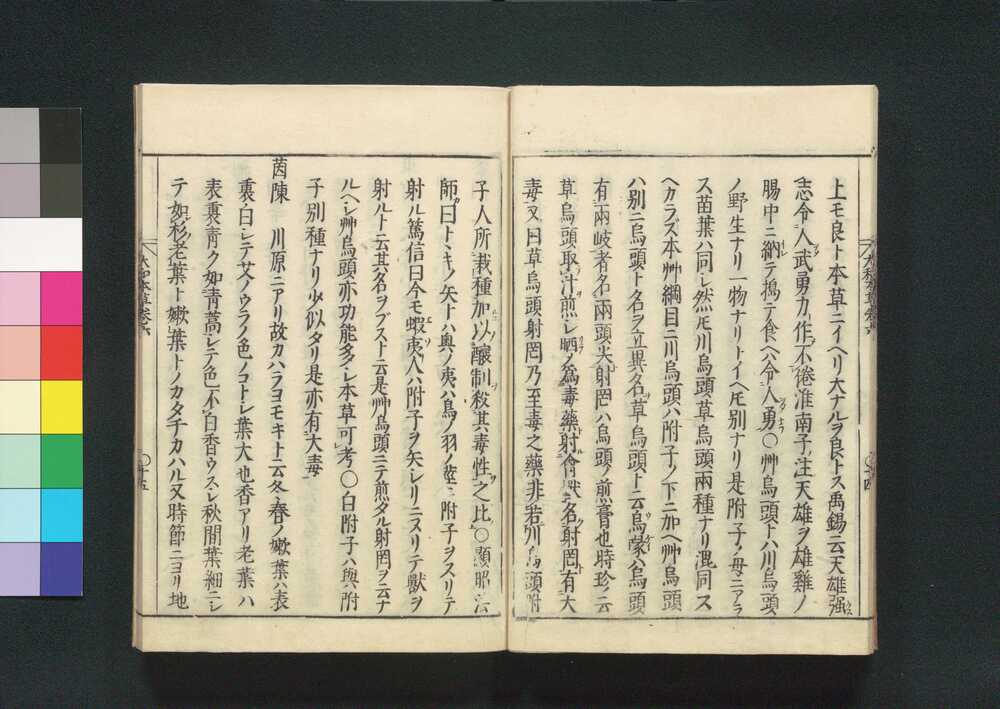 上モ良ト本草ニイヘリ大ナルヲ良トス禹錫云天雄强
志令人武勇力作不倦淮南子ノ注天雄ヲ雄雞ノ
腸中ニ納テ擣テ食ヘハ令人勇○艸烏頭ト川烏頭
ノ野生ナリ一物ナリトイヘ𪜈別ナリ是附子ノ母ニアラ
ス苗葉ハ同シ然𪜈川烏頭草烏頭兩種ナリ混同ス
ヘカラズ本艸綱目ニ川烏頭ハ附子ノ下ニ加ヘ艸烏頭
ハ別ニ烏頭ト名ヲ立異名草烏頭ト云烏喙ハ烏頭
有兩岐者名兩頭尖射罔ハ烏頭ノ煎膏也時珍ノ云
草烏頭取汁煎シ晒ノ爲毒藥射禽獸名射罔有大
毒又曰草烏頭射罔乃至毒之藥非若川烏頭附
大和本草卷六
○十四
子人所栽種加以釀制殺其毒性之比○顯昭法
師曰トヽキノ矢トハ奥ノ夷ハ鳥ノ羽ノ莖ニ附子ヲスリテ
射ル篤信曰今モ蝦夷人ハ附子ヲ矢シリニヌリテ獸ヲ
射ルト云其名ヲブスト云是艸烏頭ニテ煎タル射罔ヲ云ナ
ルヘシ艸烏頭亦功能多シ本草可考○白附子ハ與附
子別種ナリ少似タリ是亦有大毒
茵陳 川原ニアリ故カハラヨモキト云冬春ノ嫩葉ハ表
裏白シテ艾ノウラノ色ノコトシ葉大也香アリ老葉ハ
表裏青ク如青蒿シテ色不白香ウスシ秋間葉細ニシ
テ如杉老葉ト嫩葉トノカタチカハル又時節ニヨリ地
大和本草卷六
○十五